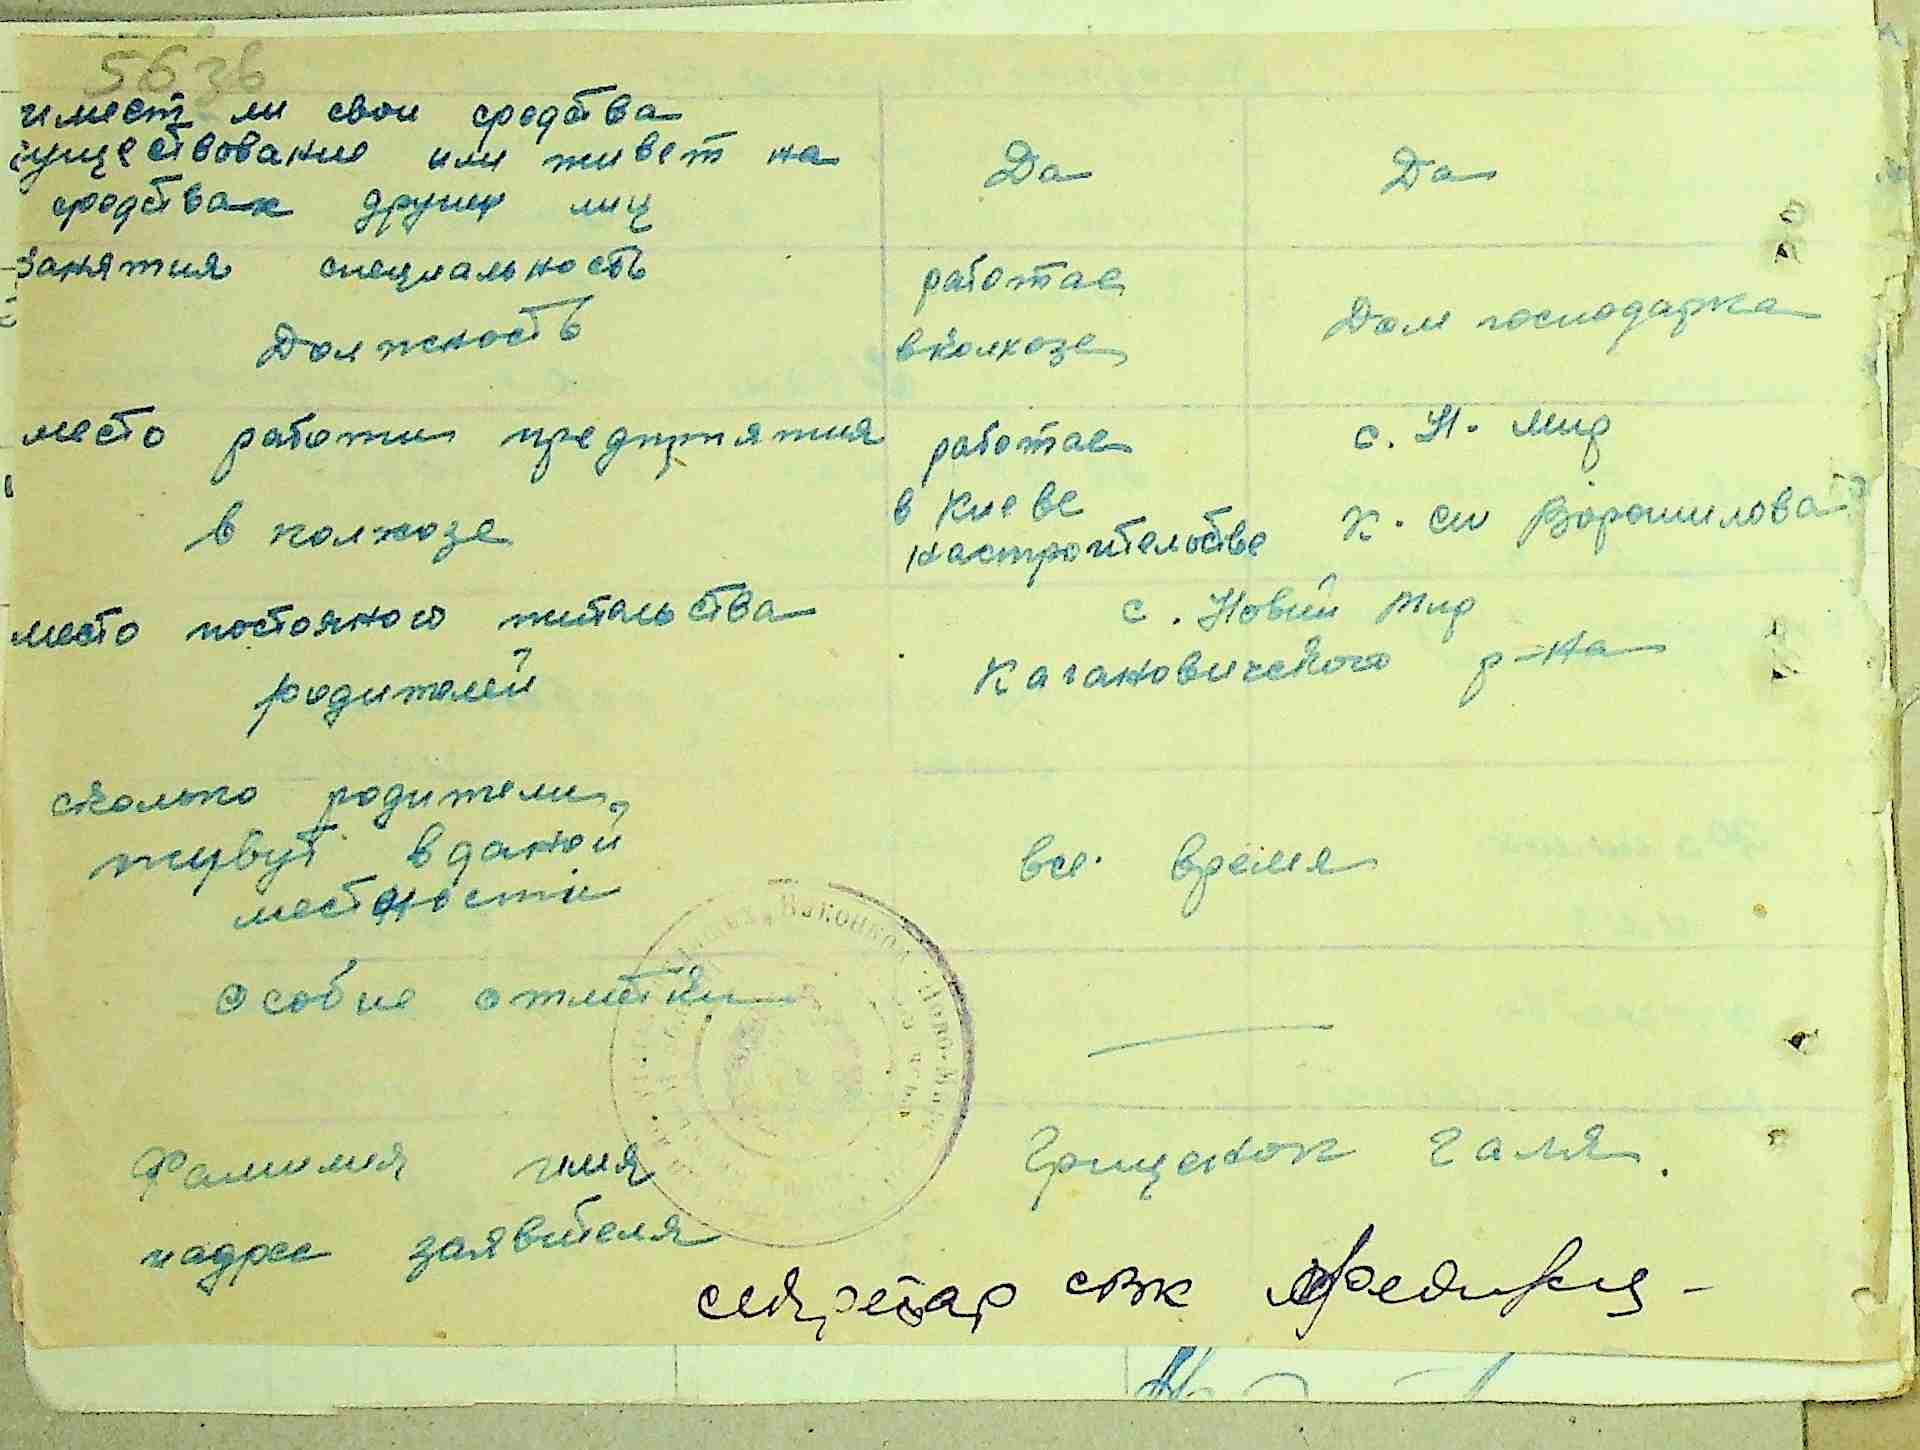 563б
имеет ли свои средства
существование или живет на
средствах других лиц
Да
Да
Занятия специальность
Должность
работае
в колхозе
Дом господарка
место работи предприятия
в колхозе
работае
в Киеве
на строительстве
с. Н. Мир
К. см Ворошилова
место постояного жительства
родителей
с. Новий Мир
Кагановичского р-на
сколько родители
живут в даной
местности
все время
Особие отметки
Фамилия имя
и адрес заявителя
Грищенок Галя.
секретар свк